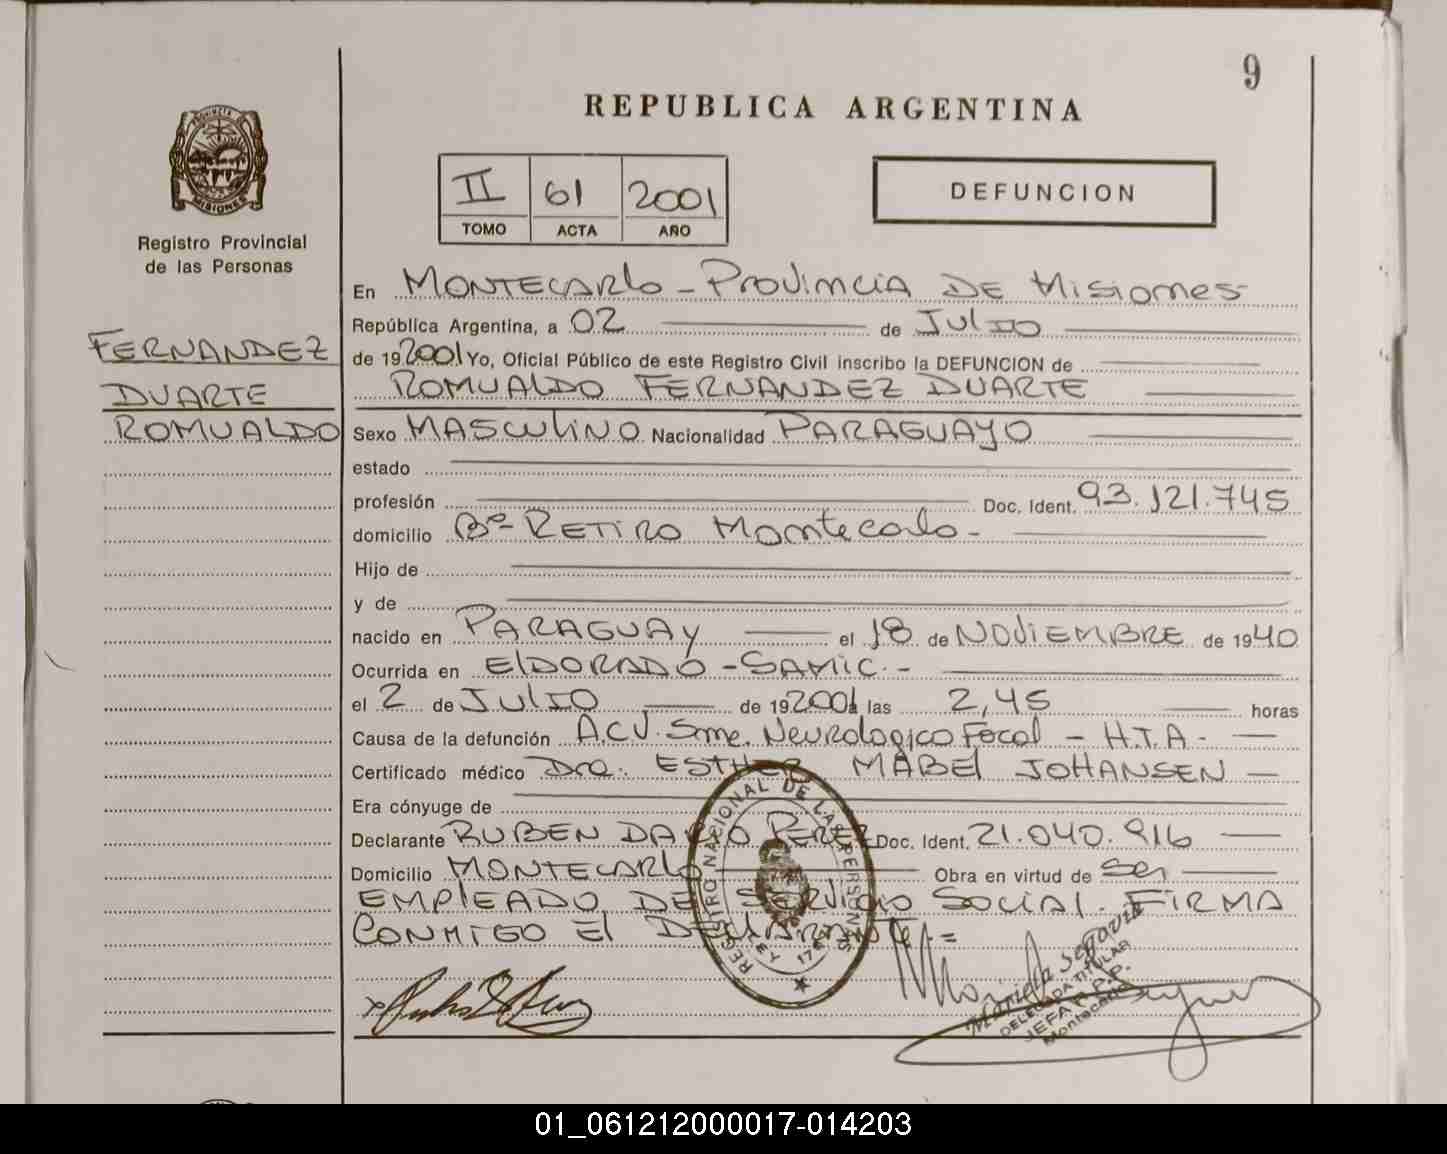 9
REPUBLICA ARGENTINA
PROVINCIA DE
MISIONES
Registro Provincial
de las Personas
II 61 2001
TOMO ACTA AÑO
DEFUNCION
FERNANDEZ
DUARTE
ROMUALDO
En MONTECARlo - PROVINCIA DE MISIONES
República Argentina, a 02 de JULIO
de 192001 Yo, Oficial Público de este Registro Civil inscribo la DEFUNCION de
ROMUALDO FERNANDEZ DUARTE
Sexo MASCULINO Nacionalidad PARAGUAYO
estado
profesión Doc. Ident. 93.121.745
domicilio Bº- RETIRO Montecarlo-
Hijo de
y de
nacido en PARAGUAY el 18 de NOVIEMBRE de 1940
Ocurrida en ElDORADO - SAMIC. -
el 2 de JULIO de 192001 las 2,45 horas
Causa de la defunción A.C.V. Sme. Neurologico Focal - H.T.A-
Certificado médico Dra. ESTHER MABEl JOHANSEN
Era cónyuge de
Declarante RUBEN DARIO PEREZ Doc. Ident. 21.040.916
Domicilio MONTECARLO Obra en virtud de Ser
EMPLEADO DEL SERVICIO SOCIAL. FIRMA
CONMIGO El DECLARANTE.=
REGISTRO NACIONAL DE LAS PERSONAS
LEY
Mariela Segovia
DELEGADA TITULAR
JEFA R.P.P.
Montecarlo
01_061212000017-014203